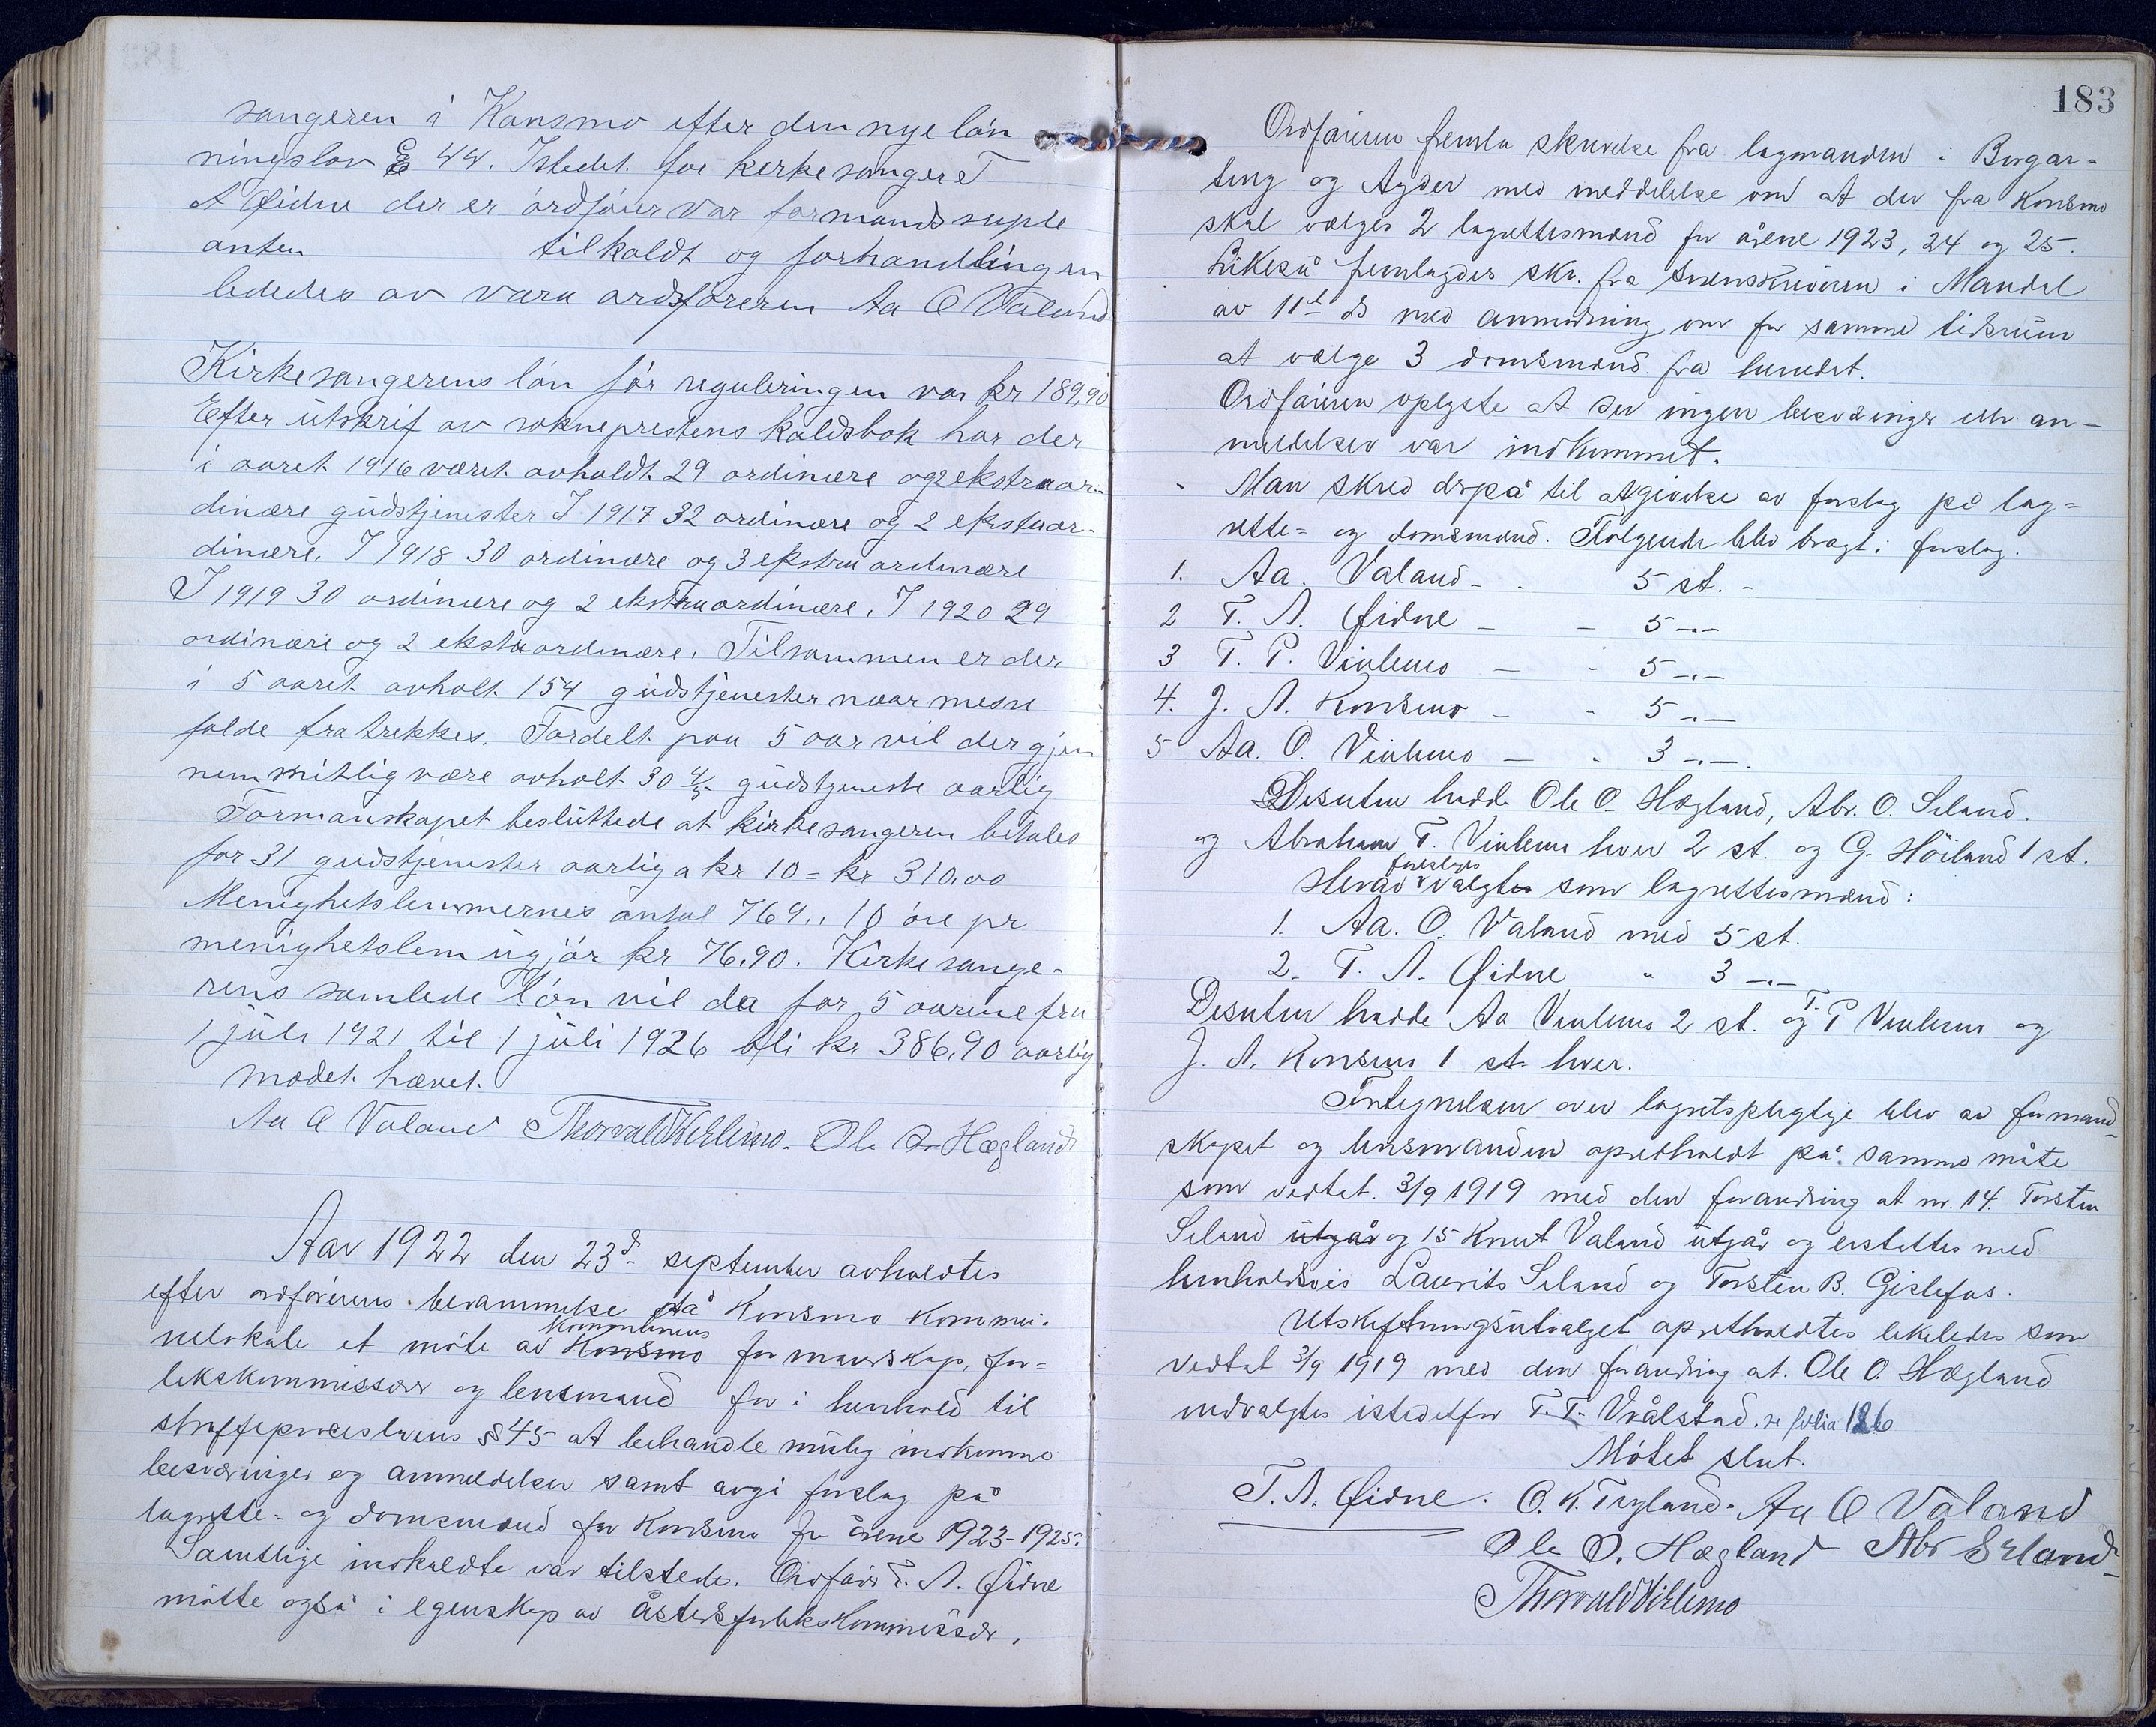 sangeren i Konsmo efter den nye løn
ningslov § 44. Istedet for kerkesanger T
A Øidne der er ordfører var formandssuple
anten tilkaldt og forhandlingen
lededes av vara ordføreren Aa O Valand
Kirkesangerens løn før reguleringen var kr 189,90
Efter utskrif av sokneprestens kaldsbok har der
i aaret 1916 været avholdt 29 ordinære og 2 ekstraor-
dinære gudstjenester I 1917 32 ordinære og 2 ekstaor-
dinære. I 1918 30 ordinære og 3 ekstra ordinære
I 1919 30 ordinære og 2 ekstraordinære. I 1920 29
ordinære og 2 ekstraordinære. Tilsammen er der
i 5 aaret avholt 154 gudstjenester naar messe
falde fratrekkes. Fordelt paa 5 aar vil der gjen
nemsnitlig være avholt 30 4/5 gudstjeneste aarlig
Formanskapet besluttede at kirkesangeren betales
for 31 gudstjenester aarlig a kr 10 = kr 310.00
Menighetslemmernes antal 769.. 10 øre pr
menighetslem ugjør kr 76.90. Kirkesange-
rens samlede løn vil da for 5 aarene fra
1 juli 1921 til 1 juli 1926 bli kr 386,90 aarlig
mødet hævet.
Aa O Valand Thorvald Viblemo. Ole O. Hægland
Aar 1922 den 23d. september avholdtes
efter ordførerens berammelse på Konsmo kommu-
nelokale et møte av Konsmo kommunens formandskap, for-
likskommissær og lensmand for i henhold til
straffeproceslovens § 45 at behandle mulig indkomne
besværinger og anmeldelser samt avgi forslag på
lagrette- og domsmænd for Konsmo for årene 1923-1925.
Samtlige indkaldte var tilstede. Ordfører T. A. Øidne
møtte også i egenskap av åstedsforlikskommissær.
183
Ordføreren fremla skrivelse fra lagmanden i Borgar-
ting og Agder med meddelelse om at der fra Konsmo
skal vælges 2 lagrettesmænd for årene 1923, 24 og 25.
Likeså fremlagdes skr. fra sorenskriveren i Mandal
av 11te ds med anmodning om for samme tidsrum
at vælge 3 domsmænd fra herredet.
Ordføreren oplyste at der ingen besværinger eller an-
meldelser var indkommet.
Man skred derpå til avgivelse av forslag på lag-
rette- og domsmænd. Følgende blev bragt i forslag.
1. Aa. Valand - - 5 st. -
2 T. A. Øidne - - 5 -"-
3 T. P. Viblemo - - 5 -"-
4. J. A. Konsmo - - 5 -"-
5 Aa. O. Viblemo - - 3 -"-.
Desuten hadde Ole O. Hægland, Abr. O. Seland.
og Abraham T. Viblemo hver 2 st. og G. Høiland 1 st.
Herav foreslåes valgt som lagrettesmænd:
1. Aa. O. Valand med 5 st.
2. T. A. Øidne " 3 -"-
Desuten hadde Aa Viblemo 2 st. og T. P Viblemo og
J. A. Konsmo 1 st. hver.
Fortegnelsen over lagretspligtige blev av formand-
skapet og lensmanden opretholdt på samme måte
som vedtat 3/9 1919 med den forandring at nr. 14. Torsten
Seland utgår og 15 Knut Valand utgår og erstattes med
henholdsvis Laurits Seland og Torsten B. Gislefos.
Utskiftningsutvalget opretholdtes likeledes som
vedtat 3/9 1919 med den forandring at Ole O. Hægland
indvalgtes istedetfor T. T. Vrålstad. se folia 186
Møtet slut.
T. A. Øidne. O. K. Trygland. Aa O Valand
Ole O. Hægland Abr Seland
Thorvald Viblemo